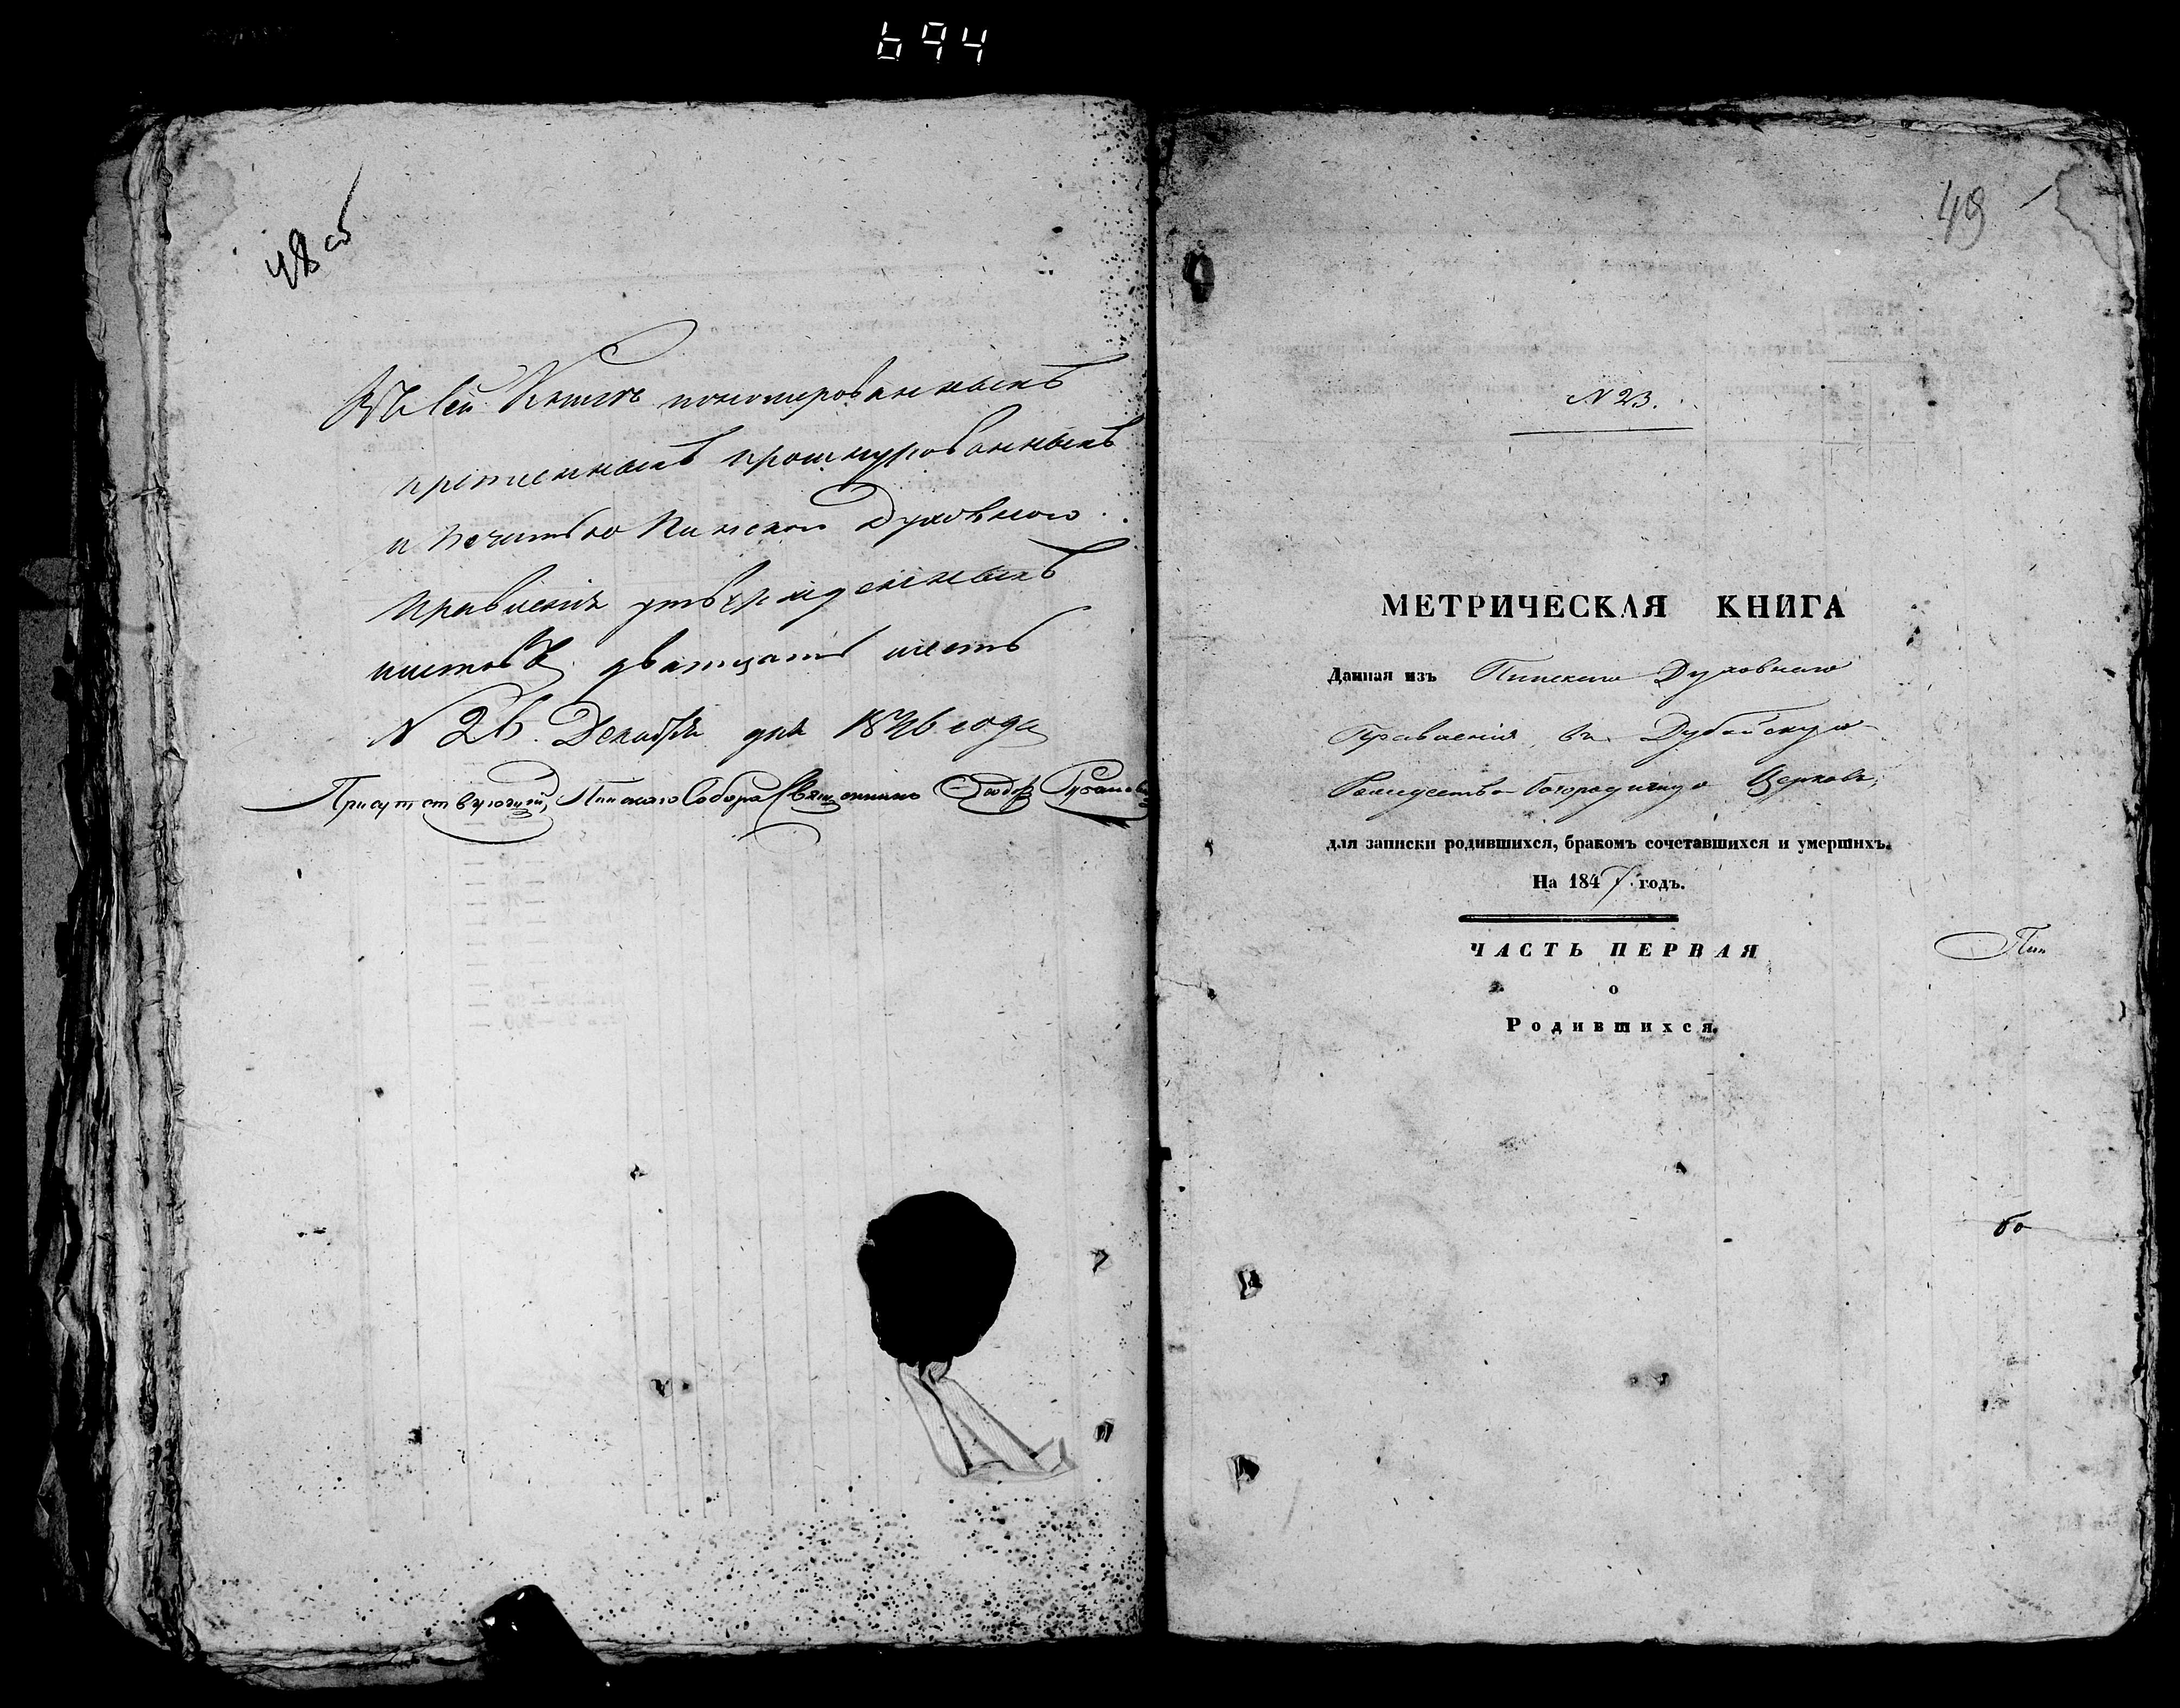 694
48 об
Въ сей Книгѣ пономерованныхъ
препменныхъ прошнурованныхъ
и Печатью Пинскаго Духовного
Правленія утвержденныхъ
листовъ дватцать шесть
N 26. Декабря дня 1846 года
Присутствующій Пинскаго Собора Священникъ Феодоръ
49
N 23.
МЕТРИЧЕСКАЯ КНИГА
Данная изъ Пинскаго Духовнаго
Правленія въ Дубойскую
Рождество-Богородичную Церковь,
для записки родившихся, бракомъ сочетавшихся и умершихъ.
На 1847 годъ.
ЧАСТЬ ПЕРВАЯ
Пин
о
Родившихся.
бо